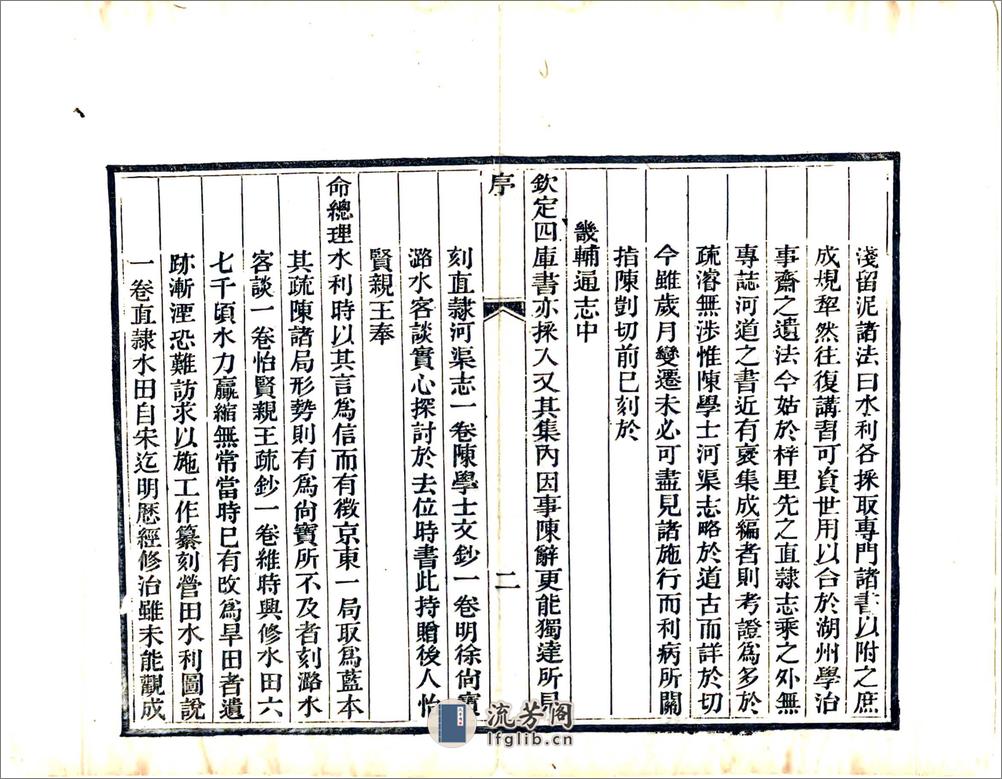 淺留泥諸法曰水利各採取專門諸書以附之庶
成規犁然往復講習可資世用以合於湖州學治
事齋之遺法今姑於梓里先之直隸志乘之外無
專誌河道之書近有裒集成編者則考證為多於
疏濬無涉惟陳學士河渠志略於道古而詳於切
今雖歲月變遷未必可盡見諸施行而利病所關
指陳剴切前已刻於
畿輔通志中
欽定四庫書亦採入又其集內因事陳辭更能獨達所見
序
二
刻直隷河渠志一卷陳學士文鈔一卷明徐尚寶
潞水客談實心探討於去位時書此持贈後人怡
賢親王奉
命總理水利時以其言為信而有徵京東一局取為藍本
其疏陳諸局形勢則有為尚寶所不及者刻潞水
客談一卷怡賢親王疏鈔一卷維時興修水田六
七千頃水力贏縮無常當時已有改為旱田者遺
跡漸湮恐難訪求以施工作纂刻營田水利圖說
一卷直隷水田自宋迄明歷經修治雖未能觀成
流芳閣
lfglib.cn